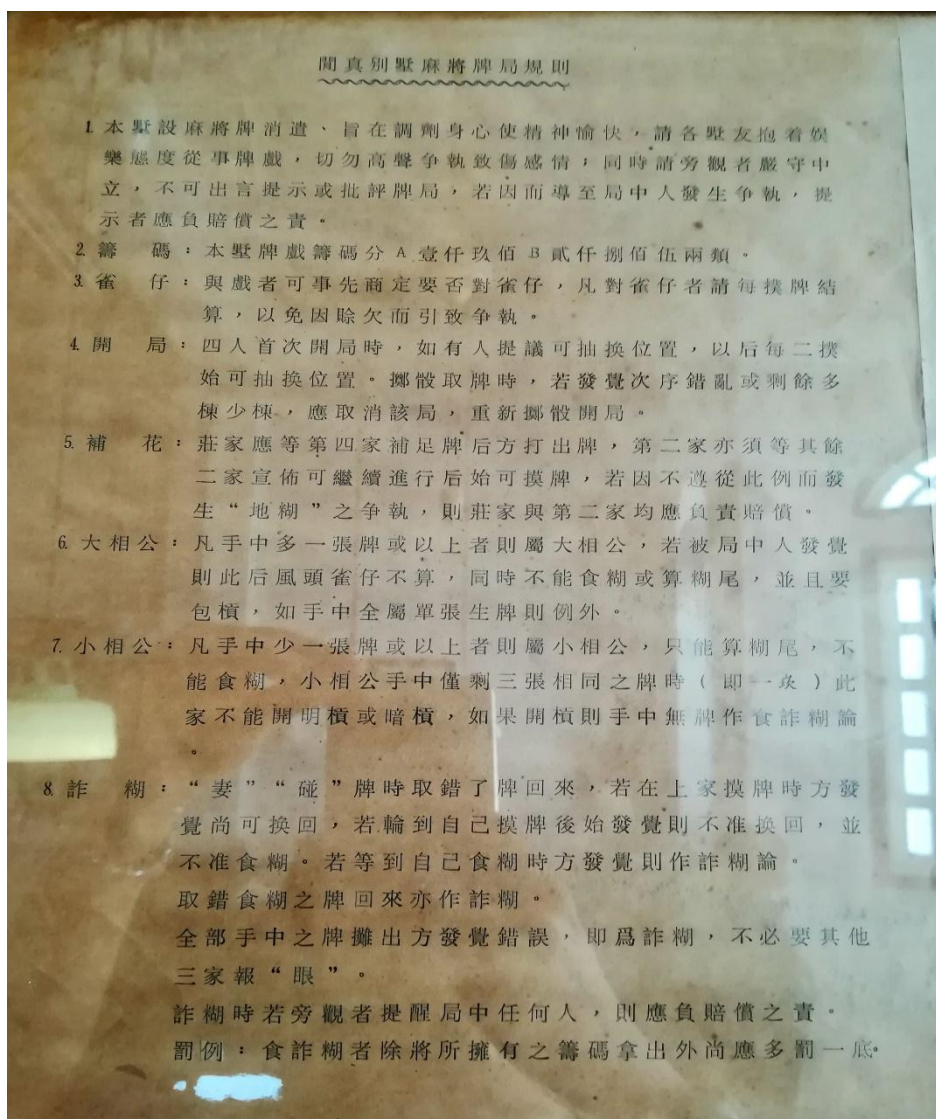 閒真別墅麻將牌局規則
1. 本墅設麻將牌消遣、旨在調劑身心使精神愉快，請各墅友抱着娛
樂態度從事牌戲，切勿高聲争執致傷感情；同時請旁觀者嚴守中
立，不可出言提示或批評牌局，若因而導至局中人發生争執，提
示者應負賠償之責。
2. 籌　碼：本墅牌戲籌碼分 A 壹仟玖佰 B 貳仟捌佰伍兩類。
3. 雀　仔：與戲者可事先商定要否對雀仔，凡對雀仔者請每撲牌結
算，以免因賒欠而引致争執。
4. 開　局：四人首次開局時，如有人提議可抽换位置，以后每二撲
始可抽换位置。擲骰取牌時，若發覺次序錯亂或剩餘多
棟少棟，應取消該局，重新擲骰開局。
5. 補　花：莊家應等第四家補足牌后方打出牌，第二家亦須等其餘
二家宣佈可繼續進行后始可摸牌，若因不遵從此例而發
生“地糊”之争執，則莊家與第二家均應負責賠償。
6. 大相公：凡手中多一張牌或以上者則屬大相公，若被局中人發覺
則此后風頭雀仔不算，同時不能食糊或算糊尾，並且要
包槓，如手中全屬單張生牌則例外。
7. 小相公：凡手中少一張牌或以上者則屬小相公，只能算糊尾，不
能食糊，小相公手中僅剩三張相同之牌時（即一炇）此
家不能開明槓或暗槓，如果開槓則手中無牌作食詐糊論
。
8. 詐　糊：“妻”“碰”牌時取錯了牌回來，若在上家摸牌時方發
覺尚可换回，若輪到自己摸牌後始發覺則不准换回，並
不准食糊。若等到自己食糊時方發覺則作詐糊論。
取錯食糊之牌回來亦作詐糊。
全部手中之牌攤出方發覺錯誤，即爲詐糊，不必要其他
三家報“眼”。
詐糊時若旁觀者提醒局中任何人，則應負賠償之責。
罰例：食詐糊者除將所擁有之籌碼拿出外尚應多罰一底。